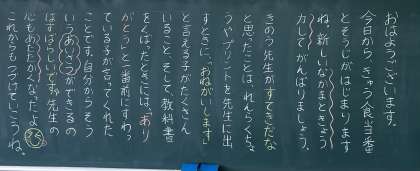 おはようございます。
今日から きゅう食当番
とそうじがはじまります
ね。新しいなかまときょう
力してがんばりましょう。
きのう先生がすてきだな
と思ったことは れんらくちょ
うやプリントを先生に出
すときに「おねがいします」
と言える子がたくさん
いること そして、教科書
をくばったときには、「あり
がとう」と一番前にすわっ
ている子が言ってくれた
ことです。自分からそう
いうあいさつができるの
はすばらしいです。先生の
心もあたたかくなったよ
これからもつづけていこうね。